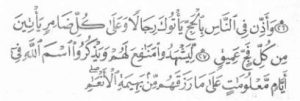 وَأَذِّن فِي النَّاسِ بِالْحَجِّ يَأْتُوكَ رِجَالًا وَعَلَىٰ كُلِّ ضَامِرٍ يَأْتِينَ
مِن كُلِّ فَجٍّ عَمِيقٍ لِّيَشْهَدُوا مَنَافِعَ لَهُمْ وَيَذْكُرُوا اسْمَ اللَّهِ فِي
أَيَّامٍ مَّعْلُومَاتٍ عَلَىٰ مَا رَزَقَهُم مِّن بَهِيمَةِ الْأَنْعَامِ